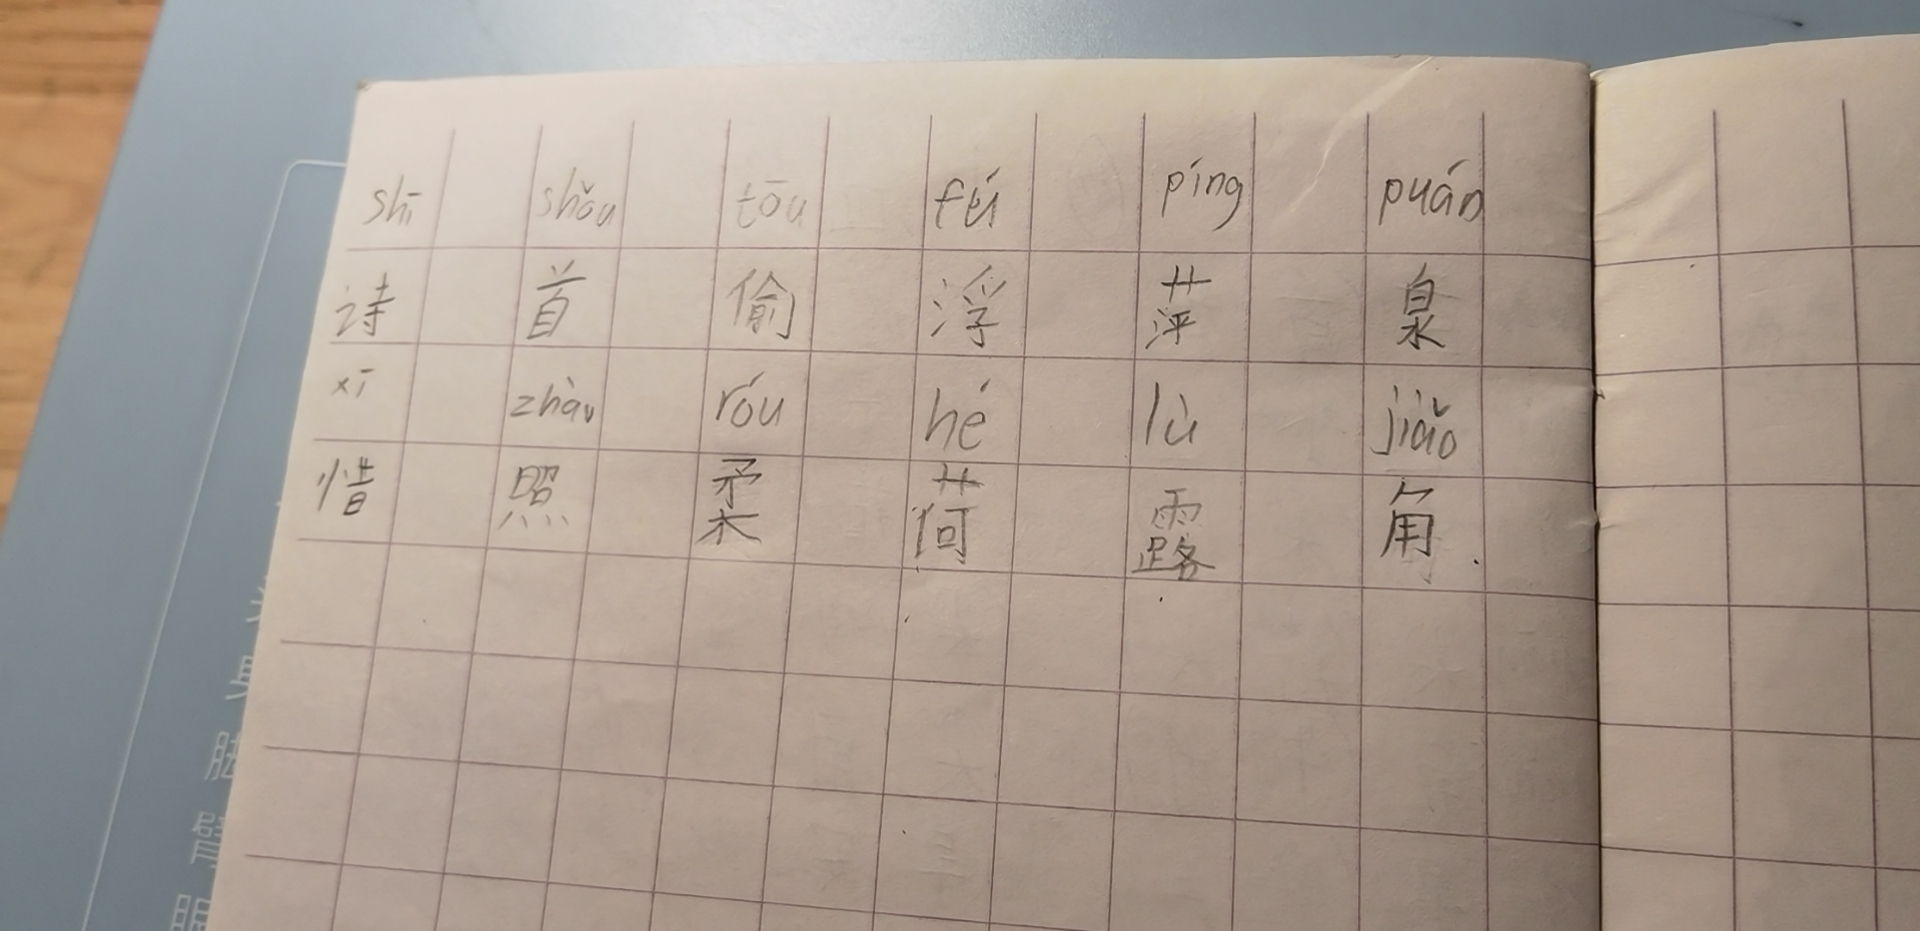 shī shǒu tōu fú píng puán
诗 首 偷 浮 萍 泉
xī zhào róu hé lù jiǎo
惜 照 柔 荷 露 角